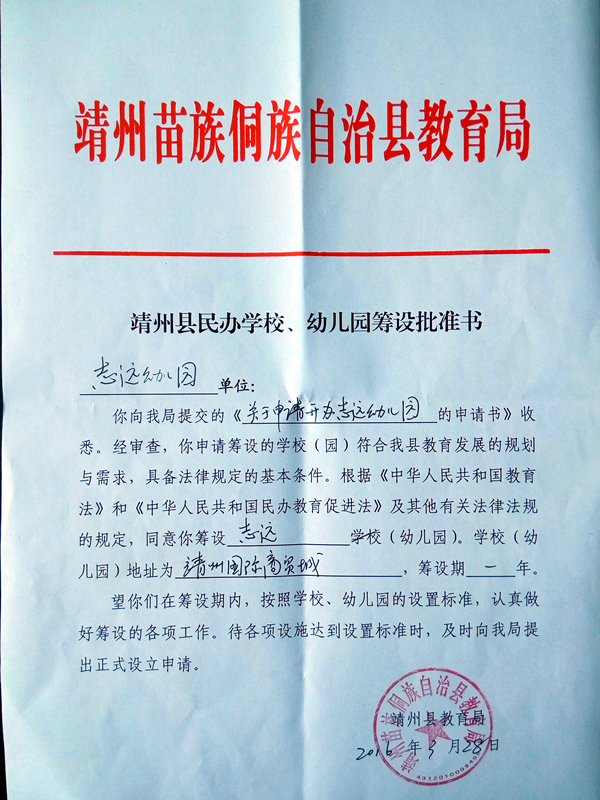 靖州苗族侗族自治县教育局
靖州县民办学校、幼儿园筹设批准书
志远幼儿园 单位：
你向我局提交的《关于申请开办志远幼儿园的申请书》收
悉。经审查，你申请筹设的学校（园）符合我县教育发展的规划
与需求，具备法律规定的基本条件。根据《中华人民共和国教育
法》和《中华人民共和国民办教育促进法》及其他有关法律法规
的规定，同意你筹设 志远 学校（幼儿园）。学校（幼
儿园）地址为 靖州国际商贸城 ，筹设期 一 年。
望你们在筹设期内，按照学校、幼儿园的设置标准，认真做
好筹设的各项工作。待各项设施达到设置标准时，及时向我局提
出正式设立申请。
靖州县教育局
2016年3月28日
靖州苗族侗族自治县教育局